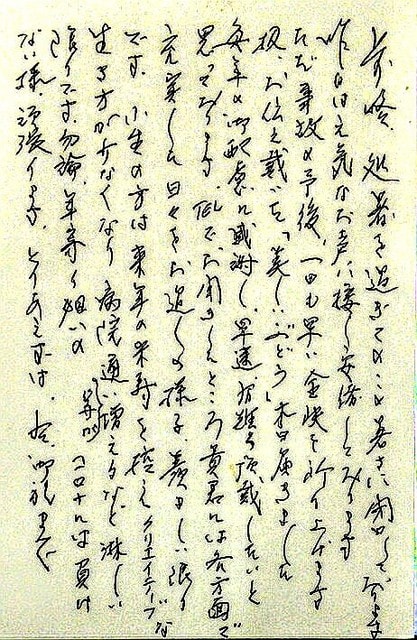 前略、処暑を過ぎてのこの暑さに閉口しております
昨日は元気なお声に接し安堵しております
ただ事故の予後、一日も早い全快を祈り上げます
扨、お伝え戴いた「美しいぶどう」本日届きました
毎年の御配慮に感謝し早速有難く頂戴したいと
思っております。TELでお聞きしたところ貴君には各方面で
充実した日々をお過しの様子、羨ましい限り
です。小生の方は来年の米寿を控えクリエイティブな
生き方が少なくなり病院通い増えるなど淋しい
限りです。勿論、年寄り狙いのコロナには負け
ない様 頑張ります。とりあえずは、御礼まで